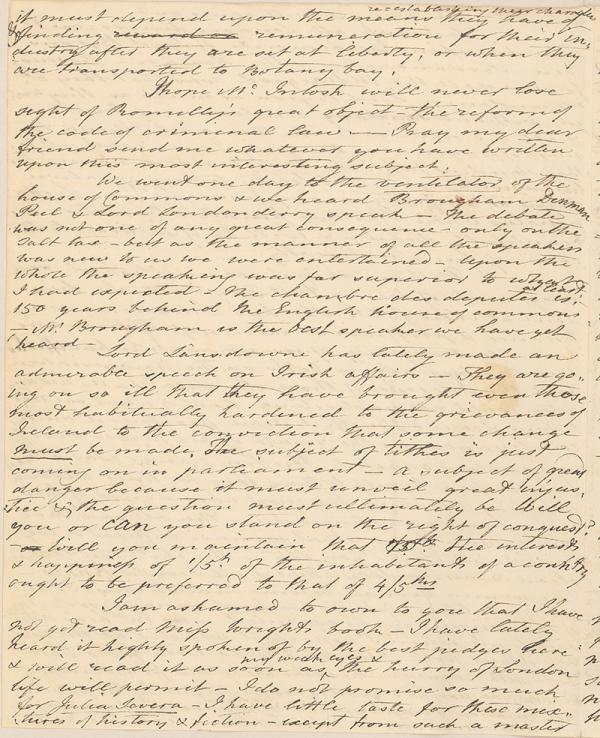 re-establishing their character
it must depend upon the means they have of
& finding reward or remuneration for their in-
dustry after they are set at liberty, or when they
are transported to Botany bay.
I hope Mc. Intosh will never lose
sight of Romilly's great object - the reform of
the code of criminal law — Pray my dear
friend send me whatever you have written
upon this most interesting subject.
We went one day to the ventilator of the
house of Commons & we heard Brougham Denman
Peel & Lord Londonderry speak - The debate
was not one of any great consequence - only on the
Salt tax - but as the manner of all the speakers
was new to us we were entertained - upon the
whole the speaking was far superior to what
I had expected - The chambre des deputés is at least
150 years behind the English house of commons
- Mr. Brougham is the best speaker we have yet
heard -
Lord Lansdowne has lately made an
admirable speech on Irish affairs — They are go-
ing on so ill that they have brought even those
most habitually hardened to the grievances of
Ireland to the conviction that some change
must be made. The subject of tithes is just
coming on in parliament - a subject of great
danger because it must unveil great injus-
tice & the question must ultimately be Will
you or can you stand on the right of conquest?
- Will you maintain that the interests
& happiness of 1/5th of the inhabitants of a country
ought to be preferred to that of 4/5ths
I am ashamed to own to you that I have
not yet read Miss Wrights book - I have lately
heard it highly spoken of by the best judges here
& will read it as soon as my weak eyes & the hurry of London
life will permit - I do not promise so much
for Julia Severa - I have little taste for these mix-
tures of history & fiction - except from such a master